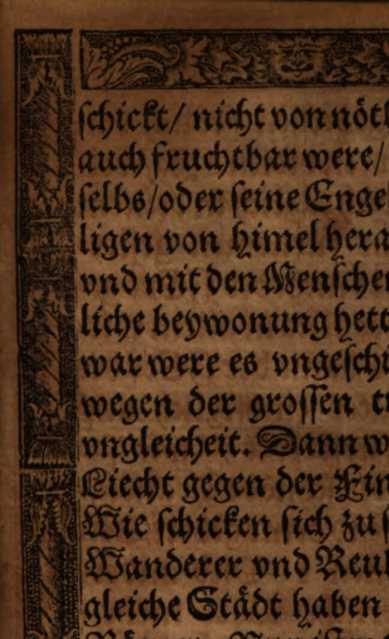 schickt/ nicht von nöt
auch fruchtbar were/
selbs/oder seine Enge
ligen von himel hera
vnd mit den Mensche
liche beywonung hett
war were es vngeschi
wegen der grossen
vngleicheit. Dann w
Liecht gegen der Fin
Wie schicken sich zu
Wanderer vnd Reu
gleiche Städt haben